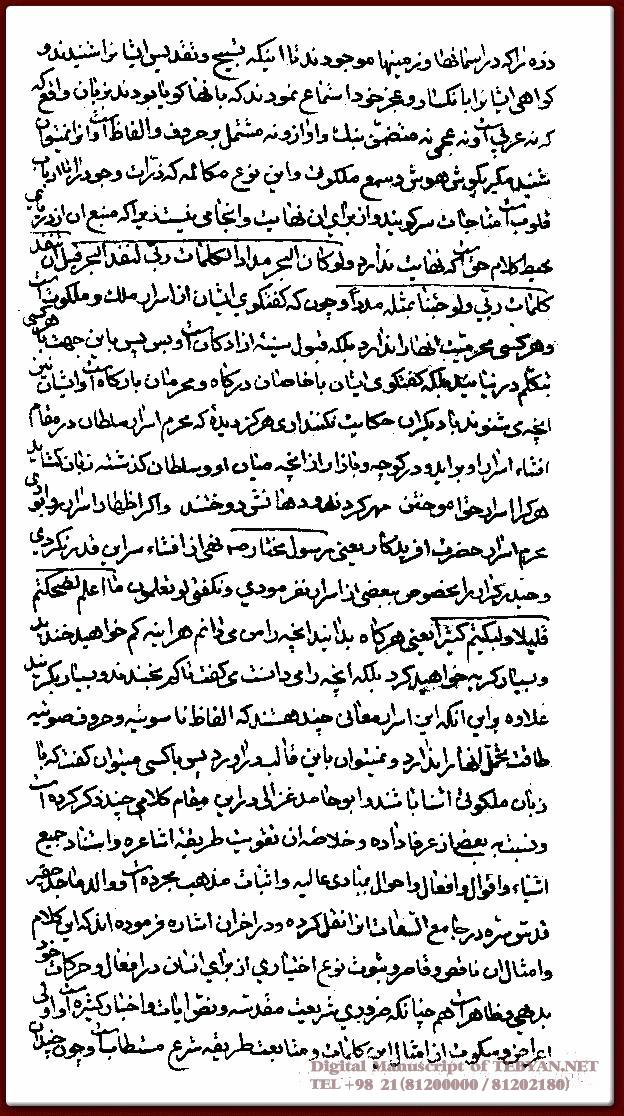 ذره را که در آسمانها و زمینها موجودند تا اینکه تسبیح و تقدیس ایشانرا شنیدند و
گواهی ایشانرا بانکسار و عجز خود استماع نمودند که بآنها گویا بودند بزبان واقع که
که نه عربی است و نه عجمی نه متضمن است و آواز و نه مشتمل بر حروف و الفاظ است و آنرا نمیتوان
شنید مگر بگوش هوش و سمع ملکوتی و این نوع مکالمه که ذرات وجود را با ارباب
قلوب است مناجات سر گویند و از برای آن نهایت و انجامی نیست زیرا که منبع آن از دریای
محیط کلام حق است که نهایت ندارد و لو کان البحر مدادا لکلمات ربی لنفد البحر قبل ان تنفد
کلمات ربی و لو جئنا بمثله مددا و چون که گفتگوی ایشان از اسرار ملک و ملکوت است
و هر کسی محرمیت آنها را ندارد بلکه قبول سینه آزادگان است و بس پس باین جهت با هر کسی
بتکلم در نیایند بلکه گفتگوی ایشان با خاصان درگاه و محرمان بارگاه است و ایشان نیز
آنچه می شنوند با دیگران حکایت نکنند آری هرگز دیده که محرم اسرار سلطان در مقام
افشاء اسرار او برآید و در کوچه و بازار از آنچه میان او و سلطان گذشته زبان گشاید
هر کرا اسرار حق آموختند مهر کردند و دهانش دوختند و اگر اظهار اسرار روا بودی
محرم اسرار حضرت آفریدگار یعنی رسول مختار ص نهی از افشاء سر این قدر نکردی
و حیدر کرار را بخصوص ببعضی از اسرار نفرمودی و نگفتی لو تعلمون ما اعلم لضحکتم
قلیلا و لبکیتم کثیرا یعنی هر گاه بدانید آنچه را من می دانم هر آینه کم خواهید خندید
و بسیار گریه خواهید کرد بلکه آنچه را می دانست می گفت تا کم بخندند و بسیار بگریند
علاوه بر این آنکه این اسرار معانی چند هستند که الفاظ ناسوتیه و حروف صوتیه
طاقت تحمل آنها را ندارد و نمیتوان باین قالب در آورد پس با کسی میتوان گفت که با
زبان ملکوتی آشنا باشد و ابو حامد غزالی در این مقام کلامی چند ذکر کرده است
و نسبت ببعض از عرفا داده و خلاصه آن تقویت طریقه اشاعره و استناد جمیع
اشیاء و اقوال و افعال و احوال بمبادی عالیه و اثبات مذهب مجرده است و والد ماجد حقیر
قدس سره در جامع السعادات آنرا نقل کرده و در آخر آن اشاره فرموده اند که این کلام
و امثال آن ناقص و قاصر و ثبوت نوع اختیاری از برای انسان در افعال و حرکات خود
بدهیی و ظاهر است هم چنانکه ضروری شریعت مقدسه و نص آیات و اخبار کثیره است و اولی
اعراض و سکوت از امثال این کلمات و متابعت طریقه شرع مستطاب است و چون چندان
Digital Manuscript of TEBYAN.NET
TEL +98 21(81200000 / 81202180)